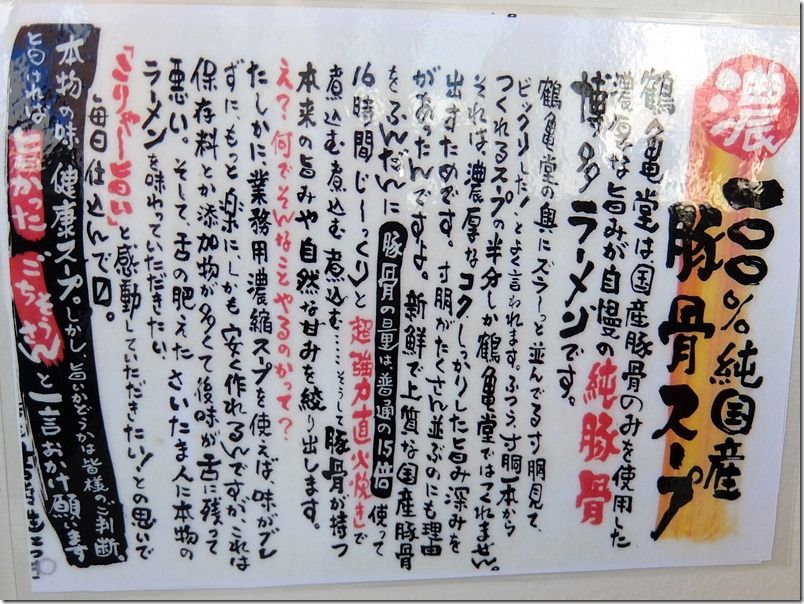 濃
一〇〇%純国産
豚骨スープ
鶴亀堂は国産豚骨のみを使用した
濃厚な旨みが自慢の純豚骨
博多ラーメンです。
鶴亀堂の奥にズラーっと並んでる寸胴見て、
ビックリした!とよく言われます。ふつう、寸胴一本から
つくれるスープの半分しか鶴亀堂ではつくれません。
それは、濃厚なコク、しっかりした旨み深みを
出すためです。寸胴がたくさん並ぶのにも理由
があったんですよ。新鮮で上質な国産豚骨
をふんだんに豚骨の量は普通の1.5倍使って
16時間じ〜っくりと超強力直火炊きで
煮込む煮込む煮込む……そうして豚骨が持つ
本来の旨みや自然な甘みを絞り出します。
え?何でそんなことやるのかって?
たしかに、業務用濃縮スープを使えば、味がブレ
ずに、もっと楽に、しかも安く作れるんですが、これは
保存料とか添加物が多くて後味が舌に残って
悪い。そして、舌の肥えたさいたま人に本物の
ラーメンを味わっていただきたい。
「こりゃ〜旨い」と感動していただきたい!との思いで
毎日仕込んで〼。
本物の味、健康スープ。しかし、旨いかどうかは皆様のご判断。
旨ければ旨かったごちそうさんと一言おかけ願います